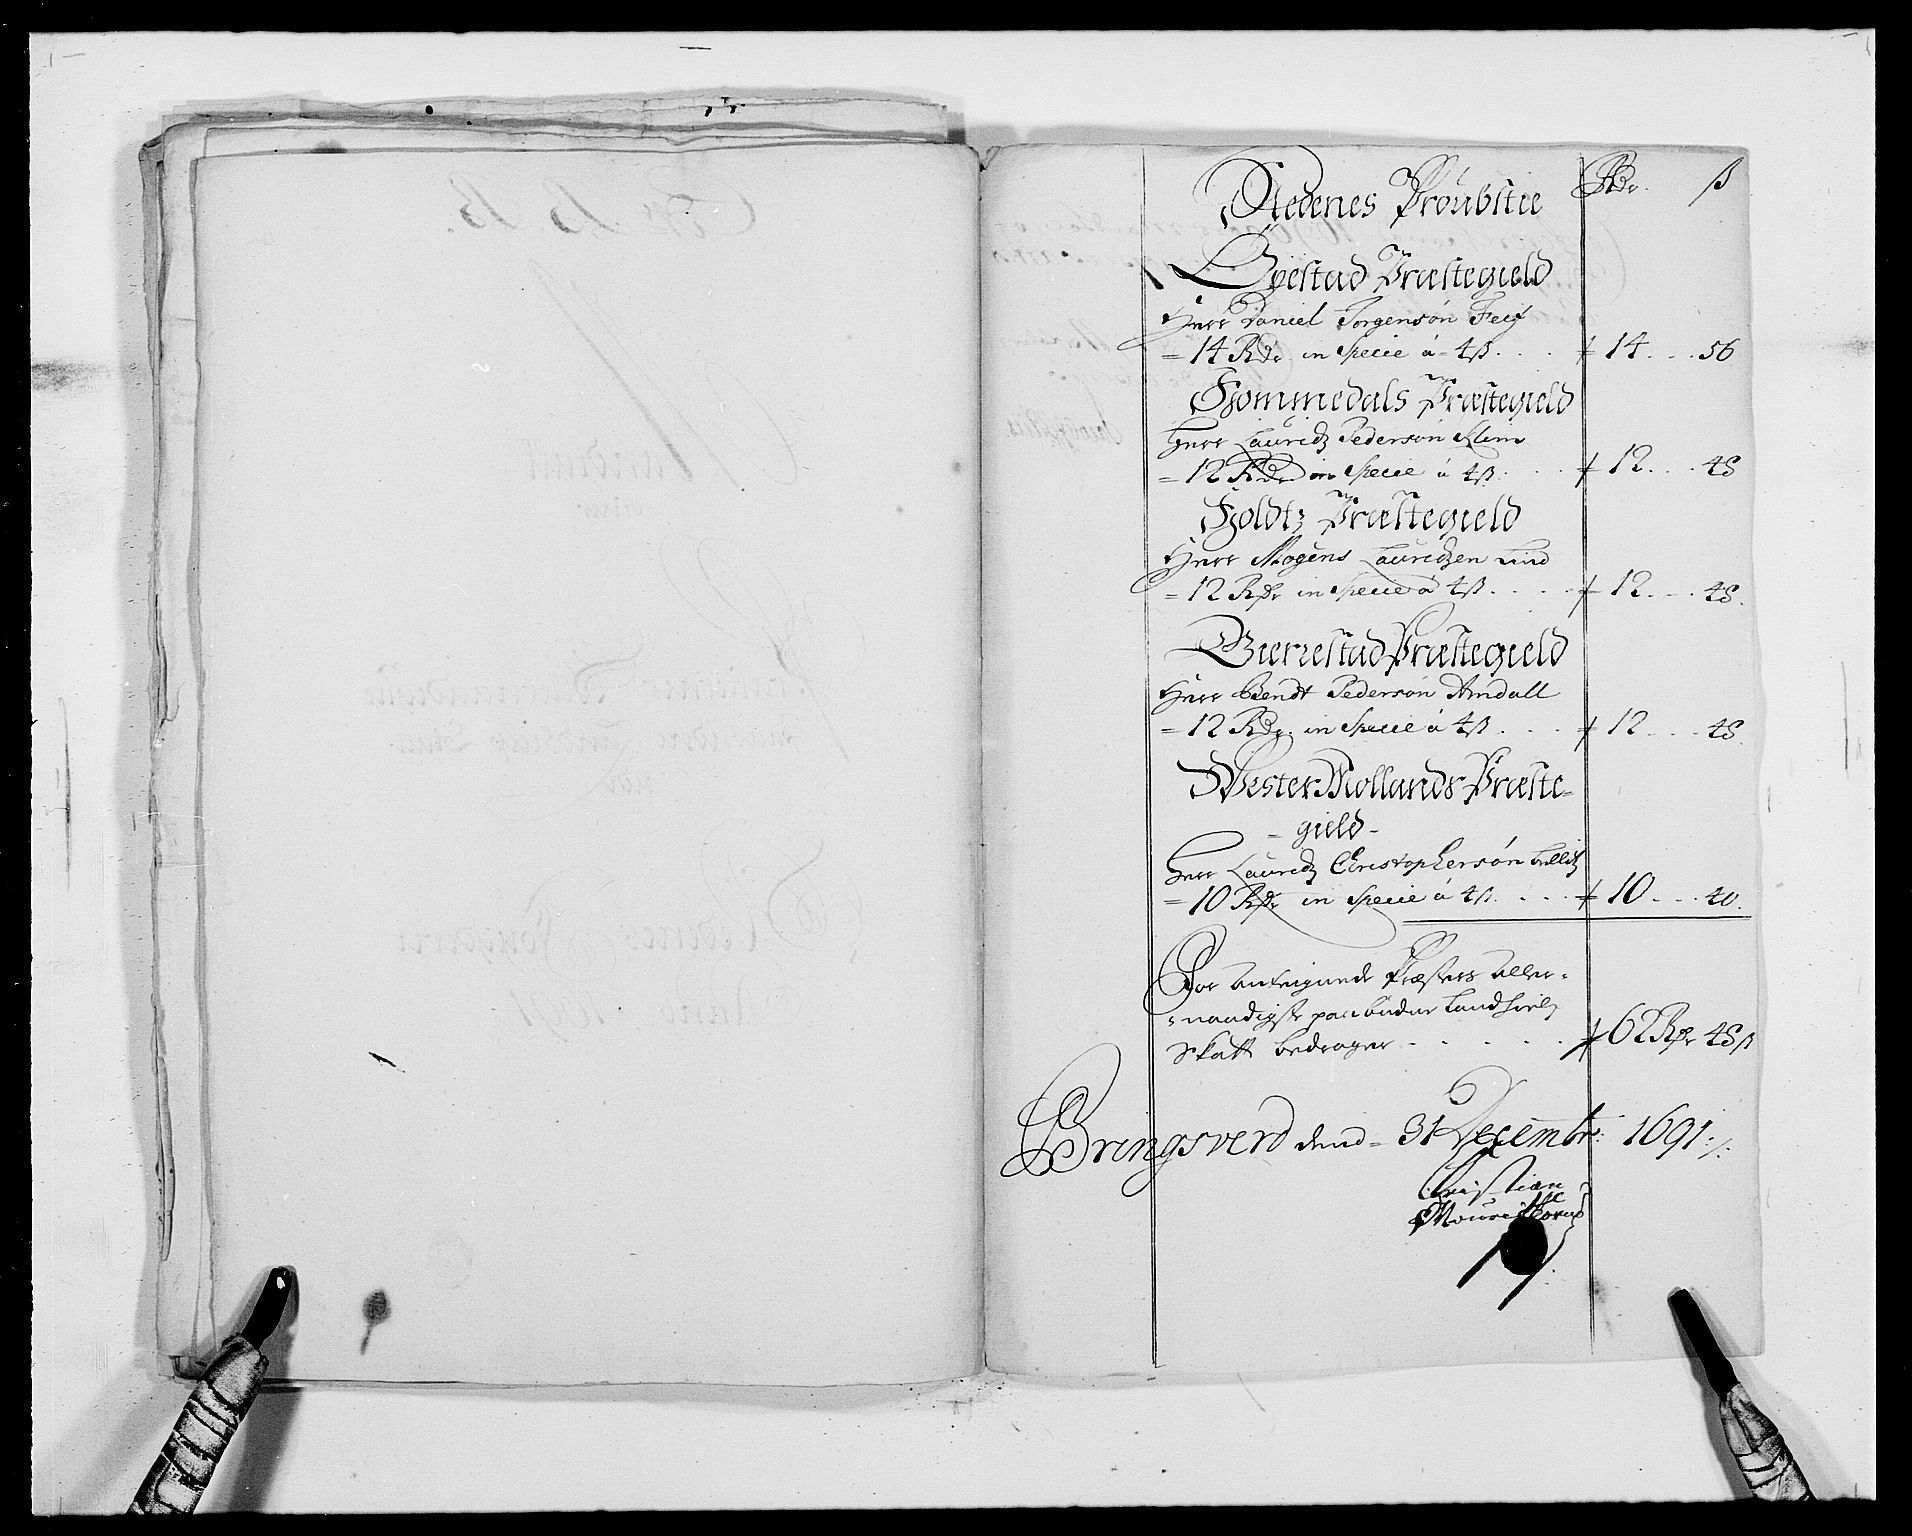 Rdr. ß
NedenesProubstie
Øyestad Præstegield
Herr Daniel Jørgensøn Feif
= 14 Rdr in Specie à 4ß. . . . 14 . . . 56
Hommedals Præstegield
Herr Lauridz Pedersøn Klim
= 12 Rdr in Specie à 4ß. . . 12 . . . 48
Holdtz Præstegield
Herr Mogens Lauridzen Wind
= 12 Rdr in Specie à 4ß . . . . 12 . . . 48.
Gierrestad Præstegield
Herr Bendt Pedersøn Arndall
= 12 Rdr. in Specie à 4ß . . . . 12 . . . 48.
Wester Mollands Præste=
= gield -
Herr Lauridz Christophersøn
= 10 Rdr in Specie à 4ß. . . . 10 . . . 40.
For Præsters aller=
= naadigste paabudne
Skatt bedrager - - - - - 62 Rdr 48ß
Bringsverd dend = 31 Decembr: 1691 ./.
Christian